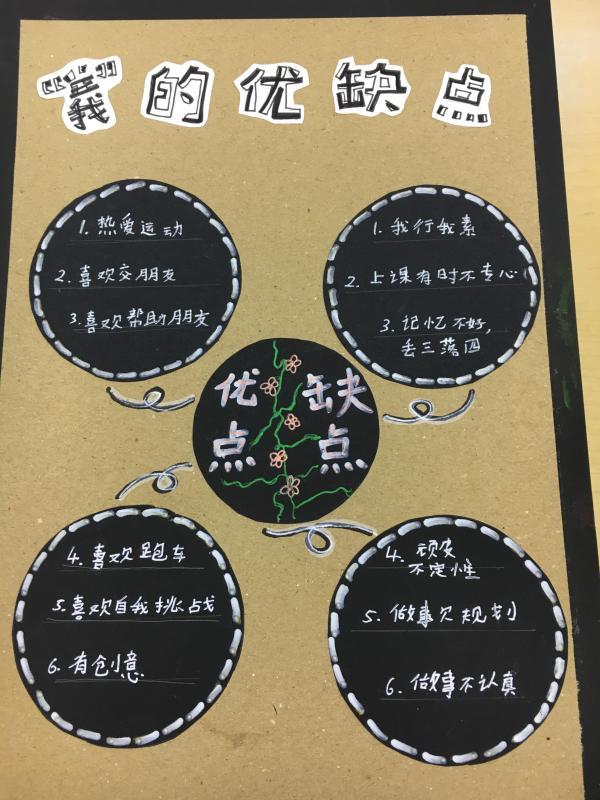 我的优缺点
1. 热爱运动
2. 喜欢交朋友
3. 喜欢帮助朋友
1. 我行我素
2. 上课有时不专心
3. 记忆不好,
丢三落四
优 缺
点 点
4. 喜欢跑车
5. 喜欢自我挑战
6. 有创意
4. 顽皮
不定性
5. 做事欠规划
6. 做事不认真